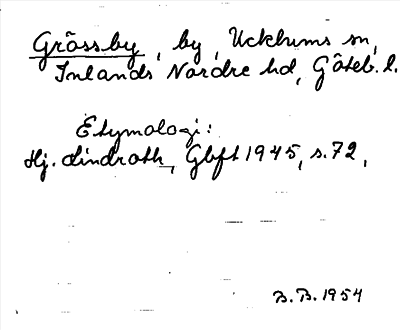 Grössby, by, Ucklums sn,
Inlands Nordre hd, Göteb. l.
Etymologi:
Hj. Lindroth, Gbft 1945, s. 72,
B. B. 1954